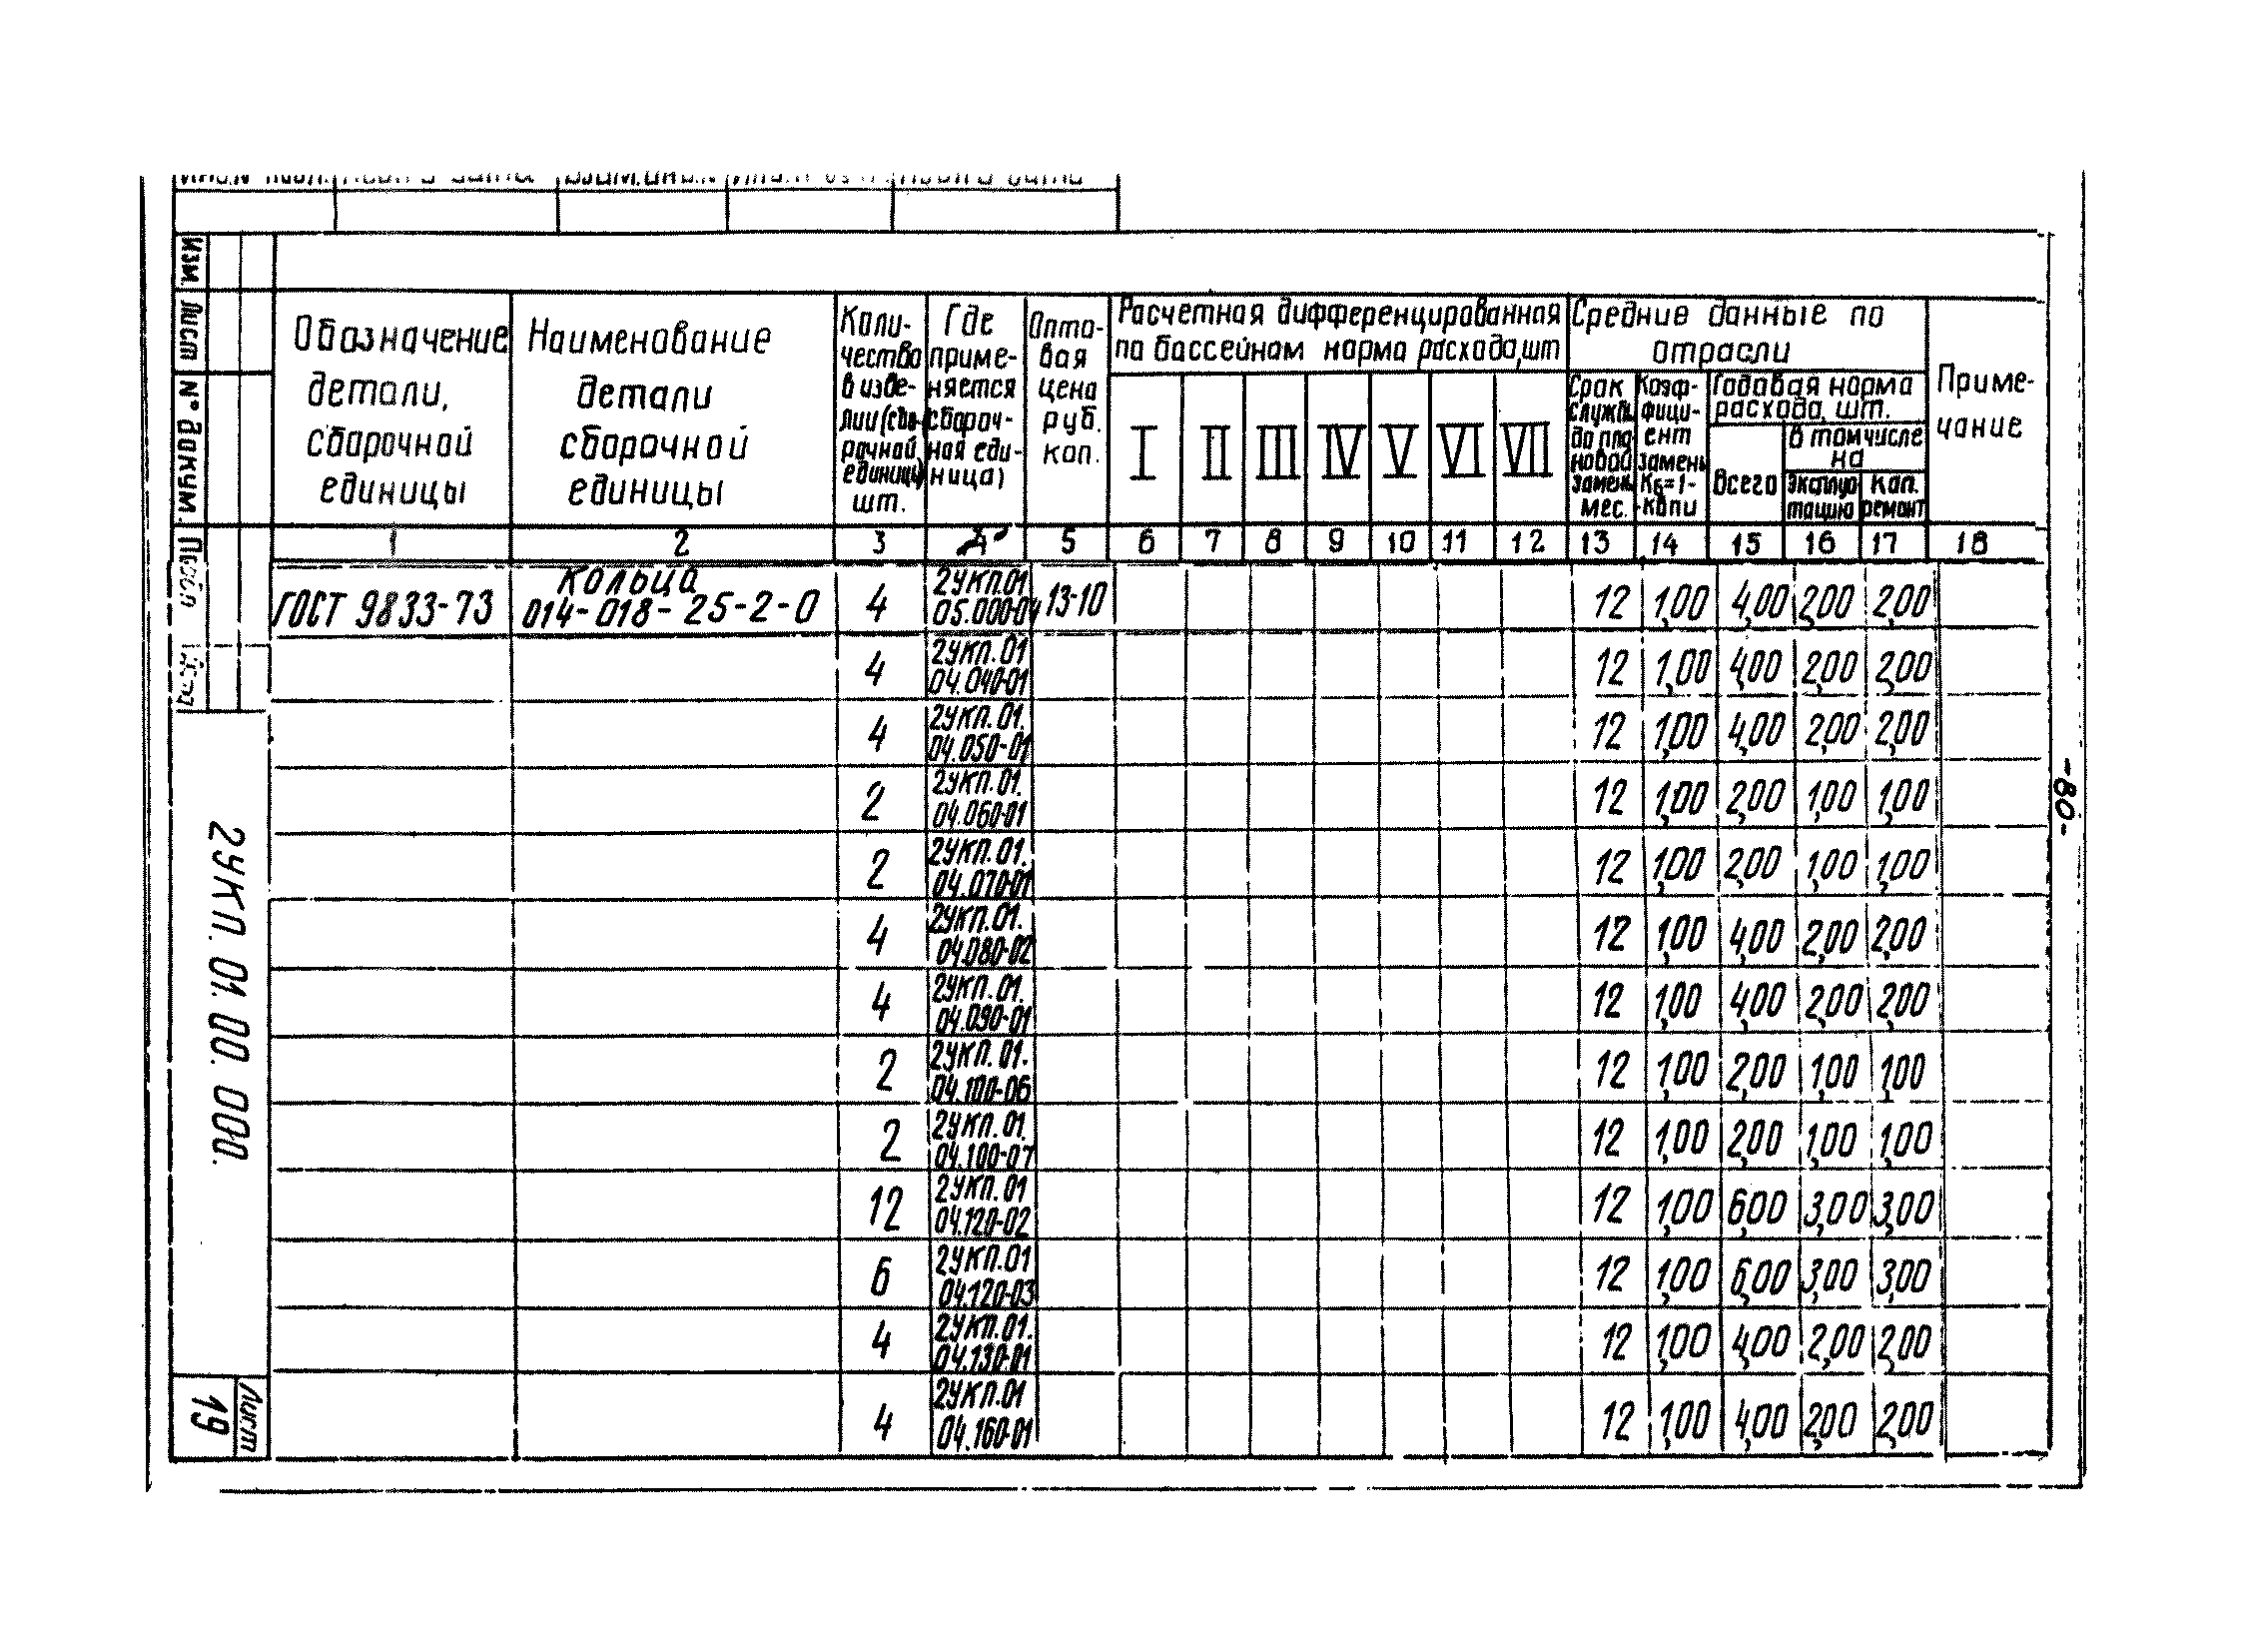 Изм. Лист № докум.
Обозначение детали, сборочной единицы
Наименование детали сборочной единицы
Коли-
чество
в изде-
лии (сбо-
рочной
единицы)
шт.
Где
приме-
няется
(сбороч-
ная еди-
ница)
Опто-
вая
цена
руб.
коп.
Расчетная дифференцированная
по бассейнам норма расхода, шт
I II III IV V VI VII
Средние данные по
отрасли
Срок
службы
до пла-
новой
замены
мес.
Коэф-
фици-
ент
замены
Кб=1-
-Копи
Годовая норма
расхода, шт.
Всего
в том числе
на
эксплуа-
тацию
кап.
ремонт
Приме-
чание
1 2 3 4 5 6 7 8 9 10 11 12 13 14 15 16 17 18
ГОСТ 9833-73 Кольца 014-018-25-2-0 4 2УКП.01 05.000-04 13-10 12 1,00 4,00 2,00 2,00
4 2УКП.01 04.040-01 12 1,00 4,00 2,00 2,00
4 2УКП.01. 04.050-01 12 1,00 4,00 2,00 2,00
2 2УКП.01. 04.060-01 12 1,00 2,00 1,00 1,00
2 2УКП.01. 04.070-01 12 1,00 2,00 1,00 1,00
4 2УКП.01. 04.080-02 12 1,00 4,00 2,00 2,00
4 2УКП.01. 04.090-01 12 1,00 4,00 2,00 2,00
2 2УКП.01. 04.100-06 12 1,00 2,00 1,00 1,00
2 2УКП.01. 04.100-07 12 1,00 2,00 1,00 1,00
12 2УКП.01 04.120-02 12 1,00 6,00 3,00 3,00
6 2УКП.01 04.120-03 12 1,00 6,00 3,00 3,00
4 2УКП.01. 04.130-01 12 1,00 4,00 2,00 2,00
4 2УКП.01 04.160-01 12 1,00 4,00 2,00 2,00
2УКП. 01. 00. 000.
Лист
19
-80-